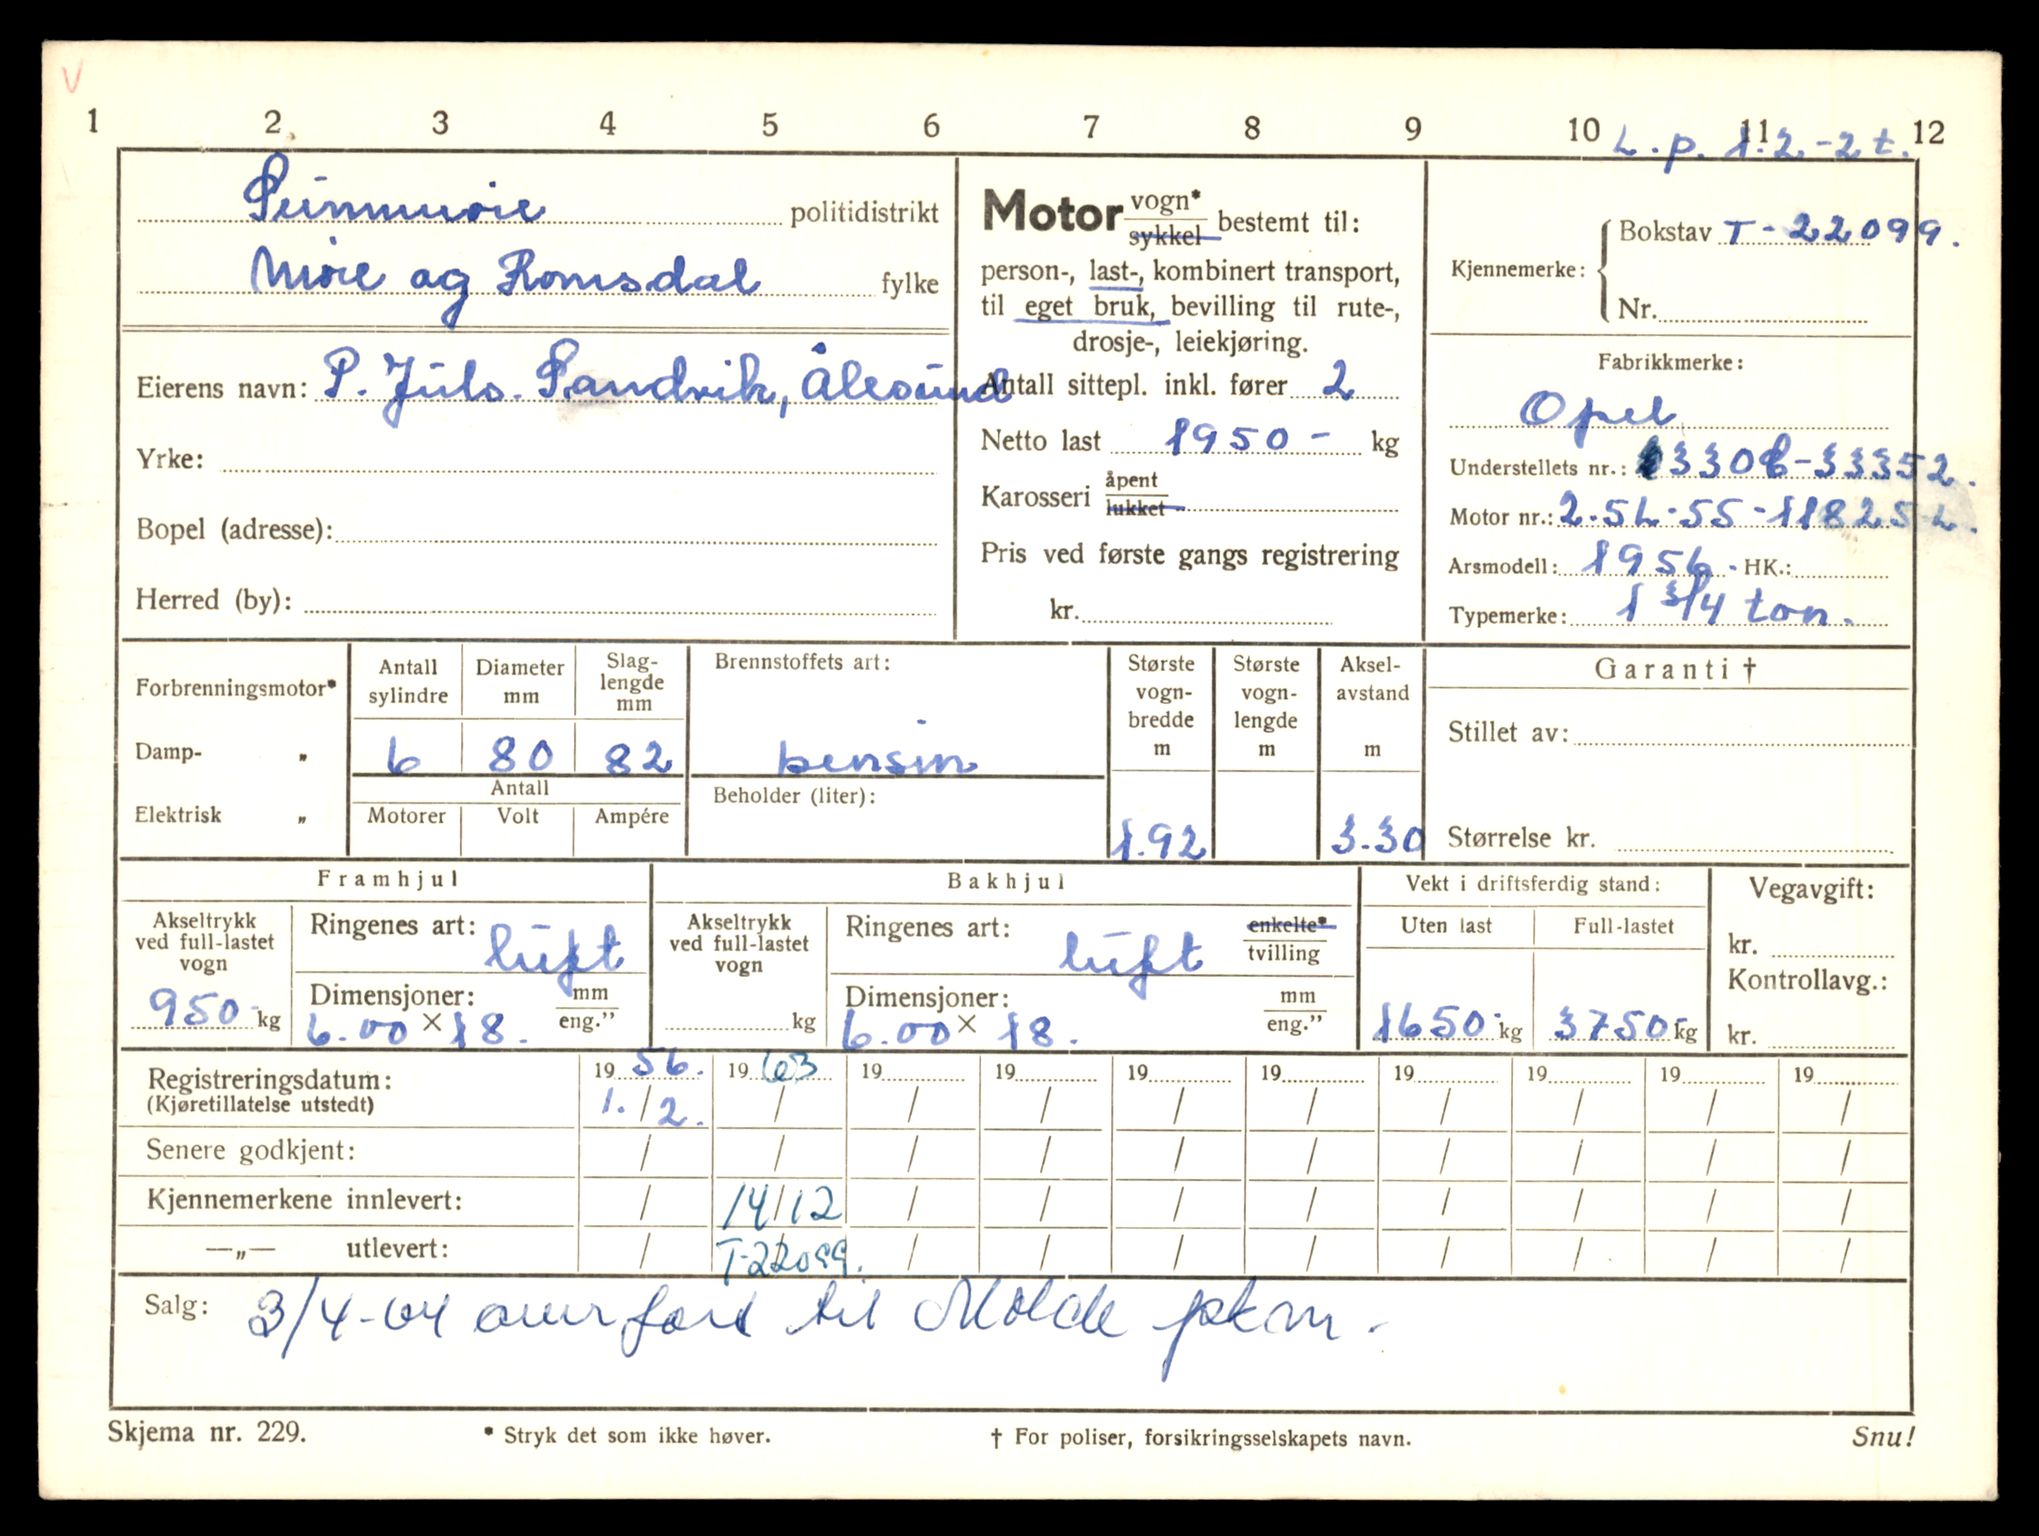 V
1 2 3 4 5 6 7 8 9 10 11 12
L.p. 1.2.-2t.
Sunnmøre politidistrikt
Møre og Romsdal fylke
Eierens navn: P. Juls. Sandvik, Ålesund
Yrke:
Bopel (adresse):
Herred (by):
Motor vogn* / sykkel bestemt til:
person-, last-, kombinert transport,
til eget bruk, bevilling til rute-,
drosje-, leiekjøring.
Antall sittepl. inkl. fører 2
Netto last 1950 - kg
Karosseri åpent / lukket
Pris ved første gangs registrering
kr.
Kjennemerke: Bokstav T - 22099.
Nr.
Fabrikkmerke:
Opel
Understellets nr.: 3306-33352.
Motor nr.: 2.5L-55-118252.
Arsmodell: 1956. HK.:
Typemerke: 1 3/4 ton.
Forbrenningsmotor*
Damp- „
Elektrisk „
Antall sylindre
Diameter mm
Slag-lengde mm
6 80 82
Antall
Motorer Volt Ampére
Brennstoffets art:
bensin
Beholder (liter):
Største vogn-bredde m
1.92
Største vogn-lengde m
Aksel-avstand m
3.30
Garanti †
Stillet av:
Størrelse kr.
Framhjul
Akseltrykk ved full-lastet vogn
950- kg
Ringenes art: luft
Dimensjoner: mm / eng.”
6.00 × 18.
Bakhjul
Akseltrykk ved full-lastet vogn
kg
Ringenes art: luft enkelte* / tvilling
Dimensjoner: mm / eng.”
6.00 × 18.
Vekt i driftsferdig stand:
Uten last Full-lastet
1650- kg 3750- kg
Vegavgift:
kr.
Kontrollavg.:
kr.
Registreringsdatum: 19 56. 19 63 19 19 19 19 19 19 19 19
(Kjøretillatelse utstedt) 1. / 2. / / / / / / / / /
Senere godkjent: / / / / / / / / / /
Kjennemerkene innlevert: / 14/12 / / / / / / / /
—„— utlevert: / T-22099. / / / / / / / /
Salg: 3/4-64 overført til Molde pkm.
Skjema nr. 229.
* Stryk det som ikke høver.
† For poliser, forsikringsselskapets navn.
Snu!